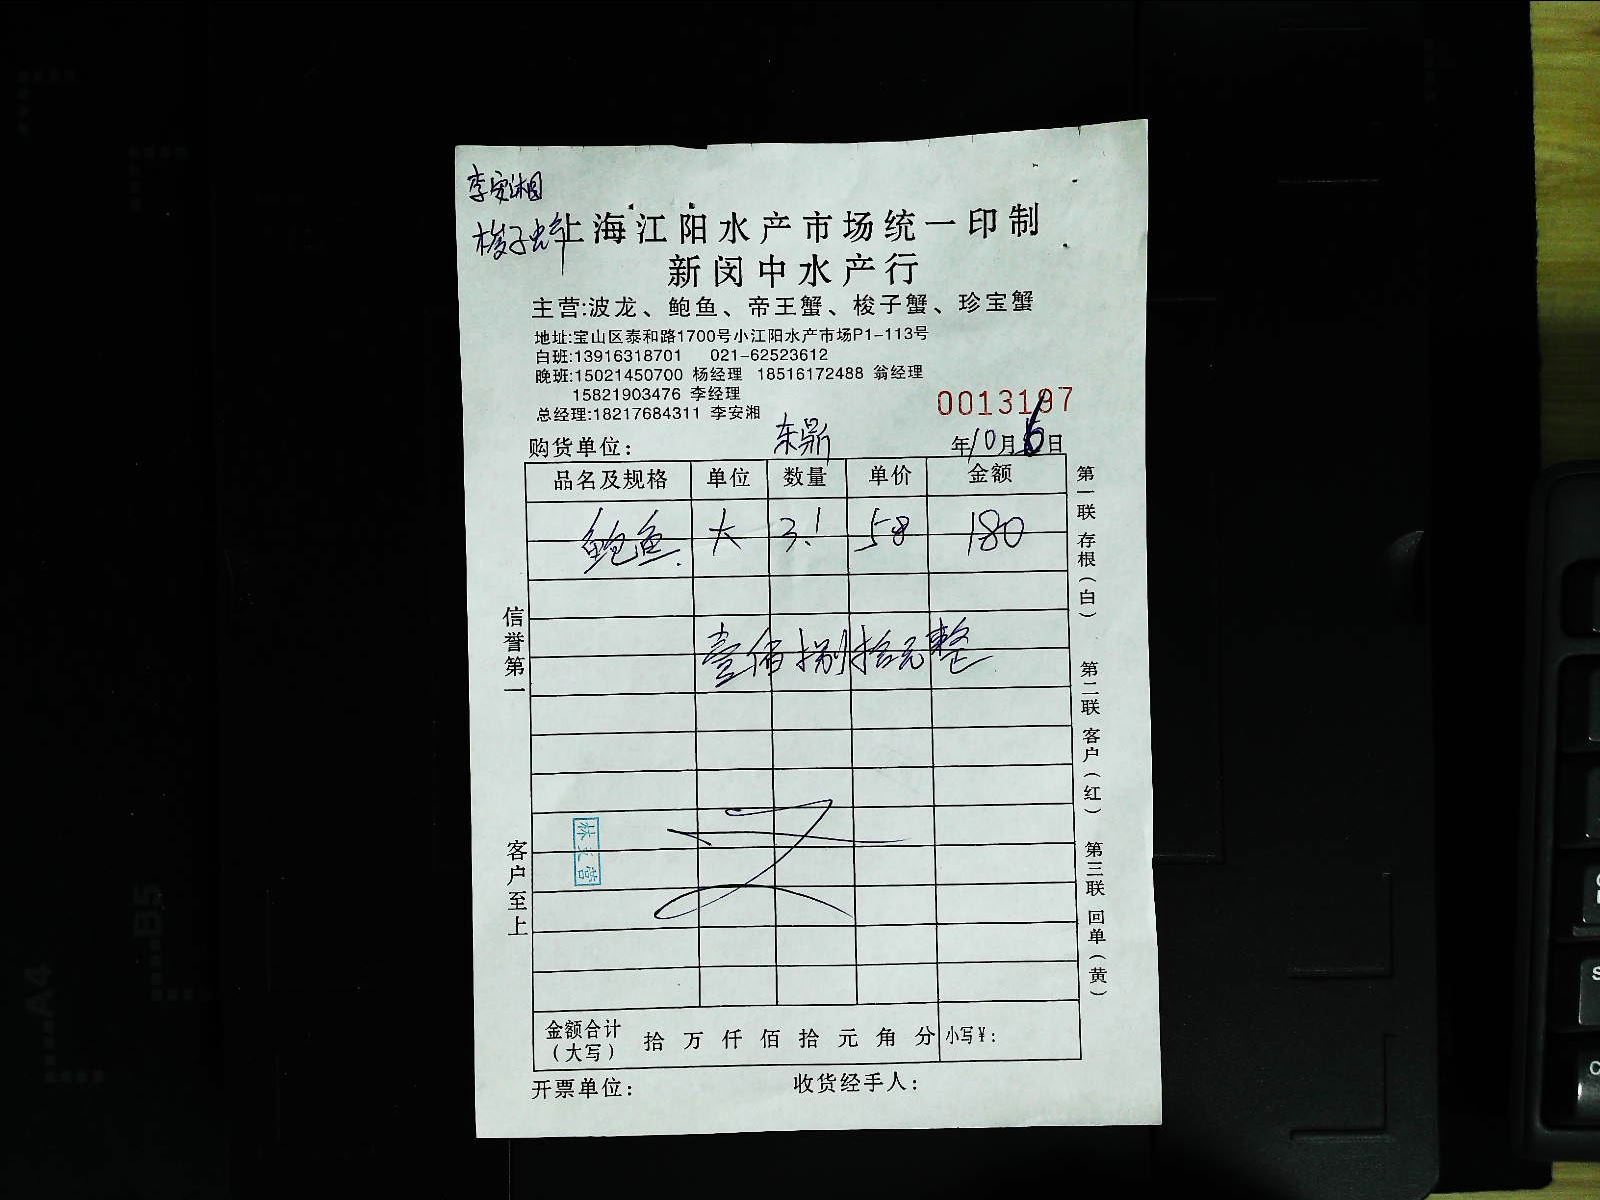 李安湘
梭子蟹
上海江阳水产市场统一印制
新闵中水产行
主营:波龙、鲍鱼、帝王蟹、梭子蟹、珍宝蟹
地址:宝山区泰和路1700号小江阳水产市场P1-113号
白班:13916318701 021-62523612
晚班:15021450700 杨经理 18516172488 翁经理
15821903476 李经理
总经理:18217684311 李安湘
0013197
购货单位: 东鼎 年10月6日
品名及规格 单位 数量 单价 金额
鲍鱼 大 3.1 58 180
壹佰捌拾元整
信誉第一
客户至上
第一联 存根(白)
第二联 客户(红)
第三联 回单(黄)
金额合计(大写) 拾 万 仟 佰 拾 元 角 分 小写¥:
开票单位: 收货经手人:
A4
B5